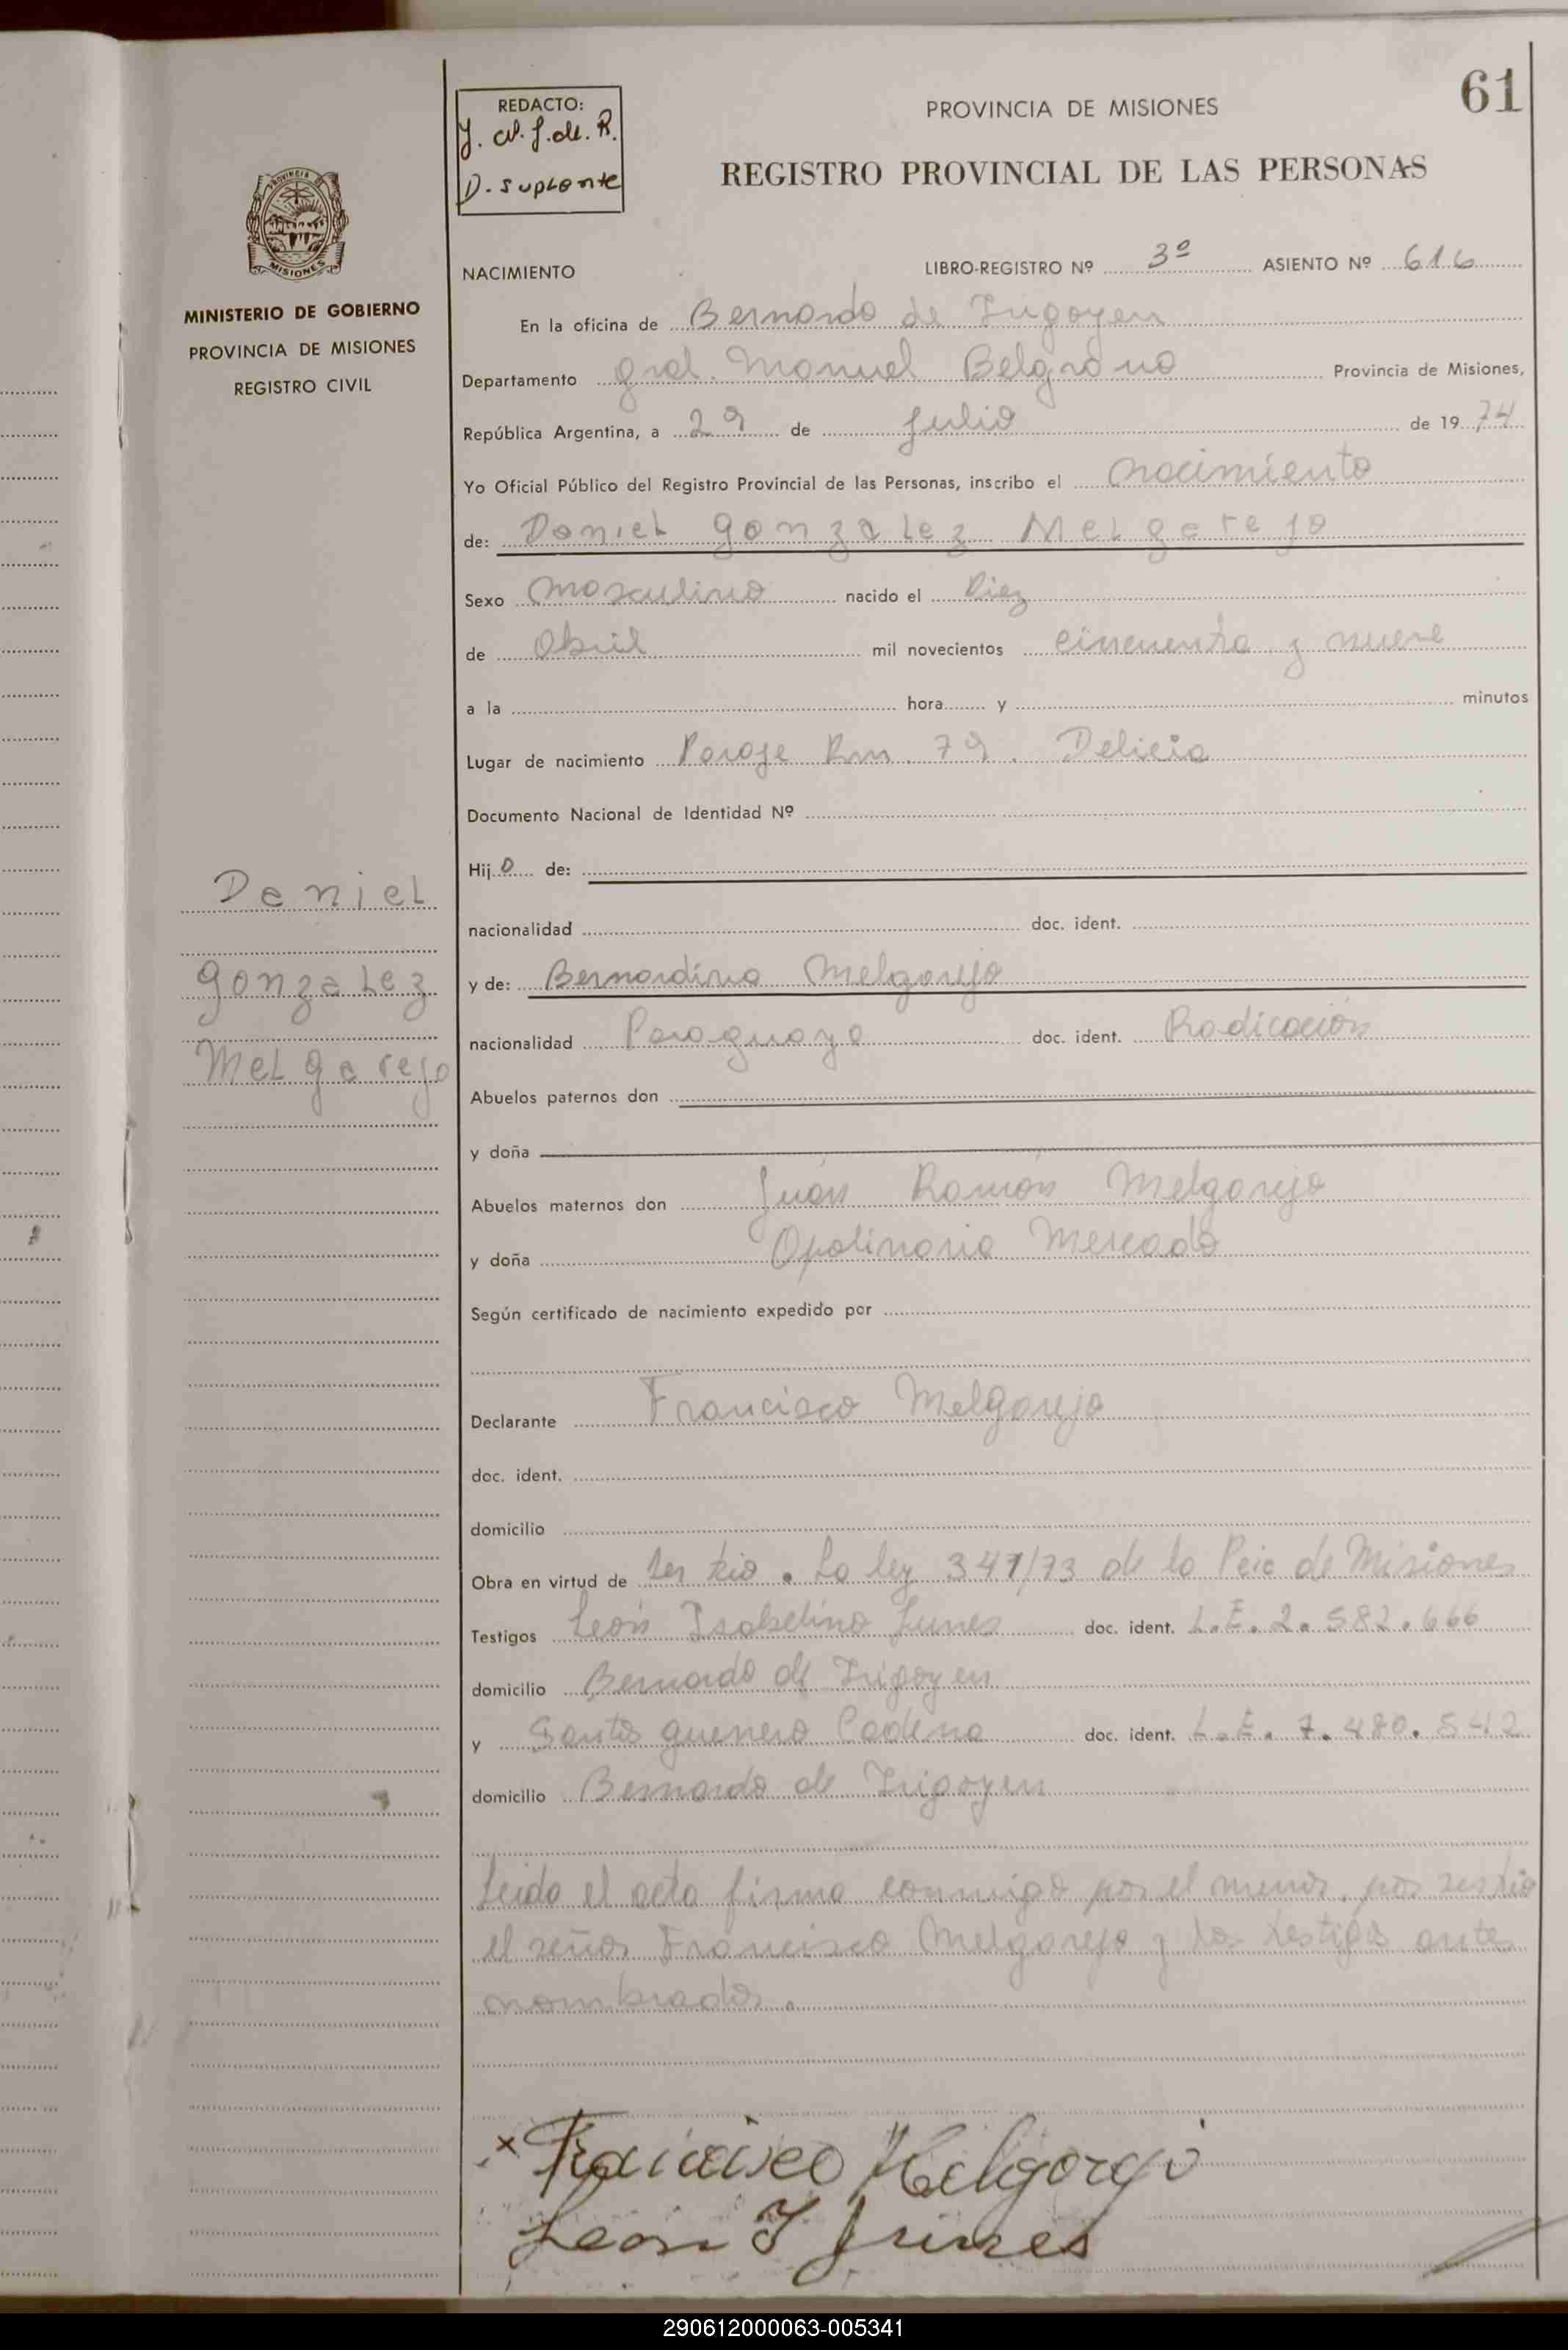 61
REDACTO:
D. suplente
PROVINCIA DE MISIONES
REGISTRO PROVINCIAL DE LAS PERSONAS
PROVINCIA DE
MISIONES
MINISTERIO DE GOBIERNO
PROVINCIA DE MISIONES
REGISTRO CIVIL
NACIMIENTO LIBRO-REGISTRO Nº 3º ASIENTO Nº 616
En la oficina de Bernardo de Irigoyen
Departamento Gral. Manuel Belgrano Provincia de Misiones,
República Argentina, a 29 de Julio de 1974
Yo Oficial Público del Registro Provincial de las Personas, inscribo el nacimiento
de: Daniel Gonzalez Melgarejo
Sexo masculino nacido el Diez
de Abril mil novecientos cincuenta y nueve
a la hora y minutos
Lugar de nacimiento Paraje Km. 79. Delicia
Documento Nacional de Identidad Nº
Hijo de:
nacionalidad doc. ident.
y de: Bernardina Melgarejo
nacionalidad Paraguaya doc. ident. Radicación
Abuelos paternos don
y doña
Abuelos maternos don Juan Ramón Melgarejo
y doña Apolinaria Mercado
Según certificado de nacimiento expedido por
Declarante Francisco Melgarejo
doc. ident.
domicilio
Obra en virtud de La ley 347/73 de la Pcia de Misiones
Testigos León Isabelino Junes doc. ident. L.E. 2.582.666
domicilio Bernardo de Irigoyen
y Santos Guerrero Cadena doc. ident. L.E. 7.480.542
domicilio Bernardo de Irigoyen
Leída el acta firma conmigo por el menor, por ser tío
el señor Francisco Melgarejo y los testigos antes
nombrados.
Daniel
Gonzalez
Melgarejo
x Francisco Melgarejo
Leon I Junes
290612000063-005341